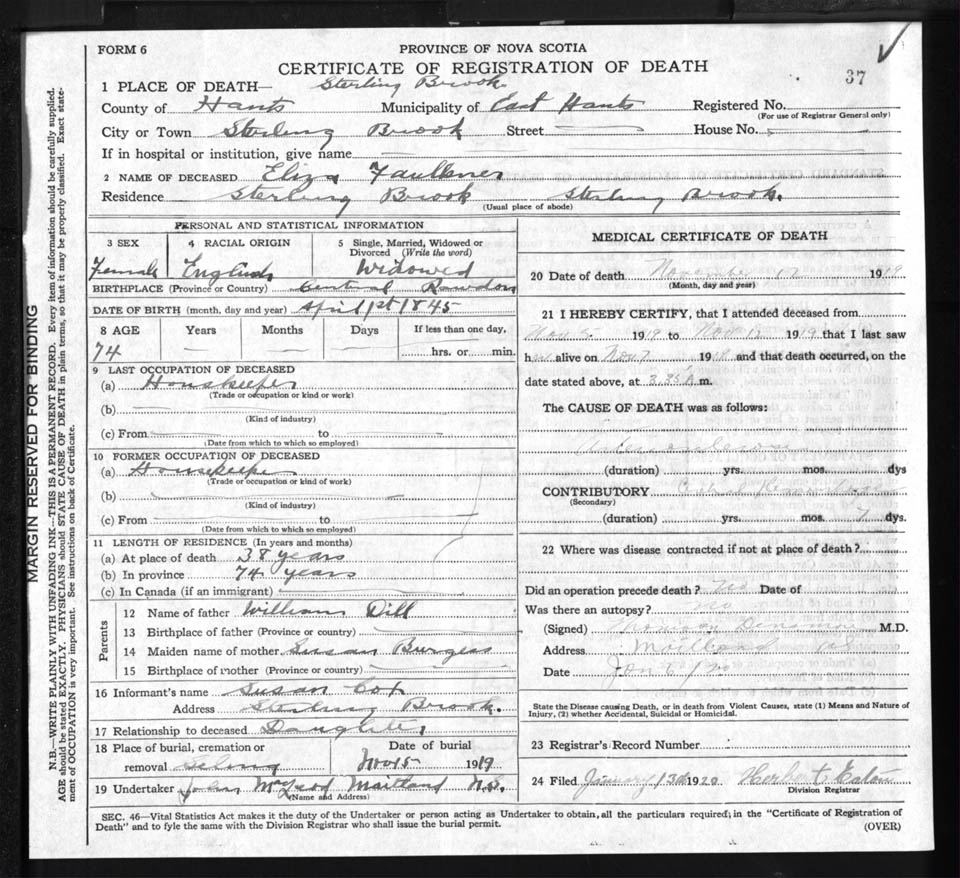 FORM 6
PROVINCE OF NOVA SCOTIA
CERTIFICATE OF REGISTRATION OF DEATH
37
1 PLACE OF DEATH— Sterling Brook.
County of Hants Municipality of East Hants Registered No.
(For use of Registrar General only)
City or Town Sterling Brook Street House No.
If in hospital or institution, give name
2 NAME OF DECEASED Eliza Faulkner
Residence Sterling Brook Sterling Brook.
(Usual place of abode)
PERSONAL AND STATISTICAL INFORMATION
3 SEX 4 RACIAL ORIGIN 5 Single, Married, Widowed or
Divorced (Write the word)
Female English Widowed
BIRTHPLACE (Province or Country) Central Rawdon
DATE OF BIRTH (month, day and year) April 1st 1845
8 AGE Years Months Days If less than one day,
74 hrs. or min.
9 LAST OCCUPATION OF DECEASED
(a) Houskeeper
(Trade or occupation or kind or work)
(b)
(Kind of industry)
(c) From to
(Date from which to which so employed)
10 FORMER OCCUPATION OF DECEASED
(a) Housekeeper
(Trade or occupation or kind of work)
(b)
(Kind of industry)
(c) From to
(Date from which to which so employed)
11 LENGTH OF RESIDENCE (In years and months)
(a) At place of death 38 years
(b) In province 74 years
(c) In Canada (if an immigrant)
Parents
12 Name of father William Dill
13 Birthplace of father (Province or country)
14 Maiden name of mother Susan Burgess
15 Birthplace of mother (Province or country)
16 Informant's name Susan Cox
Address Sterling Brook.
17 Relationship to deceased Daughter
18 Place of burial, cremation or Date of burial
removal Selma Nov 15 1919
19 Undertaker John McLeod Maitland N.S.
(Name and Address)
MEDICAL CERTIFICATE OF DEATH
20 Date of death November 12 1919
(Month, day and year)
21 I HEREBY CERTIFY, that I attended deceased from
Nov 5 1919 to Nov 12 1919 that I last saw
h alive on Nov 7 19 and that death occurred, on the
date stated above, at 3.35 A m.
The CAUSE OF DEATH was as follows:
(duration) yrs. mos. dys
CONTRIBUTORY
(Secondary)
(duration) yrs. mos. 7 dys.
22 Where was disease contracted if not at place of death?
Did an operation precede death? No Date of
Was there an autopsy? no
(Signed) M.D.
Address Maitland NS
Date Jan 6/20
State the Disease causing Death, or in death from Violent Causes, state (1) Means and Nature of
Injury, (2) whether Accidental, Suicidal or Homicidal.
23 Registrar's Record Number
24 Filed January 13th 1920 Herbert Eaton
Division Registrar
SEC. 46—Vital Statistics Act makes it the duty of the Undertaker or person acting as Undertaker to obtain, all the particulars required, in the "Certificate of Registration of
Death" and to fyle the same with the Division Registrar who shall issue the burial permit.
(OVER)
MARGIN RESERVED FOR BINDING
N.B.—WRITE PLAINLY WITH UNFADING INK—THIS IS A PERMANENT RECORD. Every item of information should be carefully supplied.
AGE should be stated EXACTLY. PHYSICIANS should STATE CAUSE OF DEATH in plain terms, so that it may be properly classified. Exact state-
ment of OCCUPATION is very important. See instructions on back of Certificate.